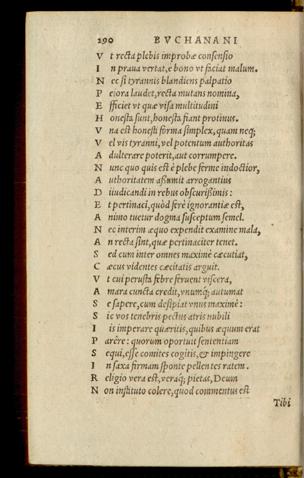 290 BVCHANANI
Vt recta plebis improbæ consensio
In praua vertat, e bono vt faciat malum.
Nec si tyrannis blandiens palpatio
Peiora laudet, recta mutans nomina,
Efficiet vt quæ visa multitudini
Honesta sunt, honesta fiant protinus.
Vna est honesti forma simplex, quam neq;
Vel vis tyranni, vel potentum authoritas
Adulterare poterit, aut corrumpere.
Nunc quo quis est è plebe ferme indoctior,
Authoritatem assumit arrogantius
Diiudicandi in rebus obscurissimis:
Et pertinaci, quòd ferè ignorantiæ est,
Animo tuetur dogma susceptum semel.
Nec interim æquo expendit examine mala,
An recta sint, quæ pertinaciter tenet.
Sed cum inter omnes maximè cæcutiat,
Cæcus videntes cæcitatis arguit.
Vt cui perusta febre feruent viscera,
Amara cuncta credit, vnumq; autumat
Se sapere, cum desipiat vnus maximè:
Sic vos tenebris pectus atris nubili
Iis imperare quæritis, quibus æquum erat
Parêre: quorum oportuit sententiam
Sequi, esse comites cogitis, & impingere
In saxa firmam sponte pellentes ratem.
Religio vera est, veraq; pietas, Deum
Non instituto colere, quod commentus est
Tibi